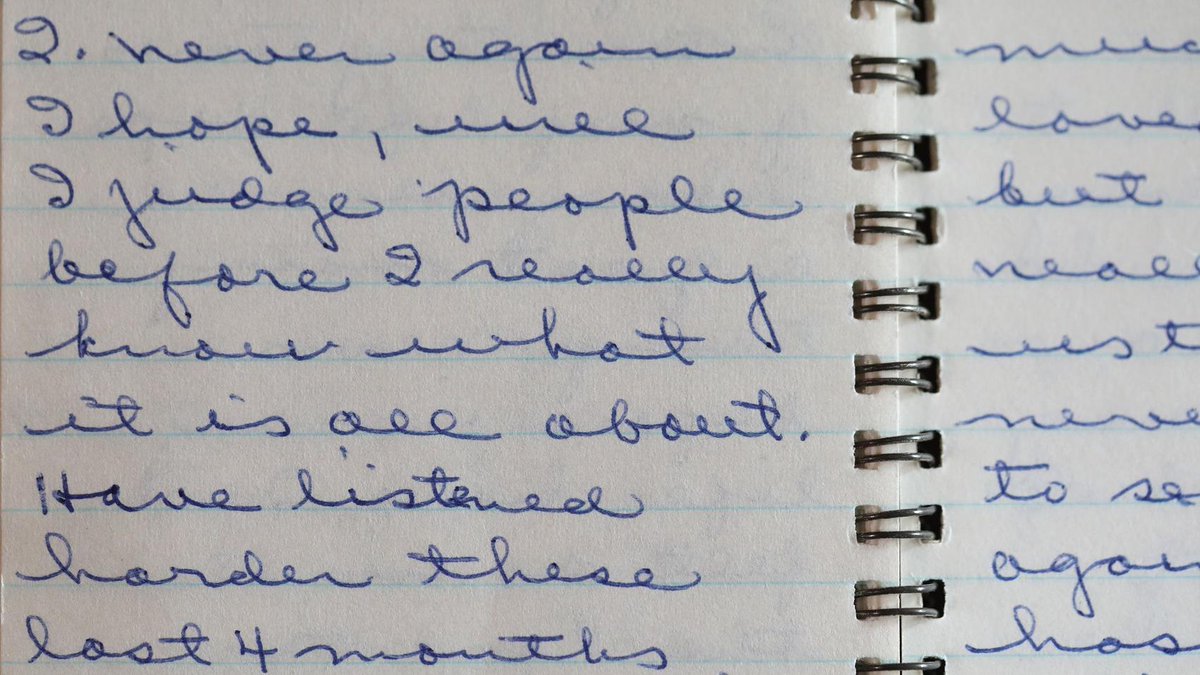 2. never again
I hope, will
I judge people
before I really
know what
it is all about.
Have listened
harder these
last 4 months
but
to se
has